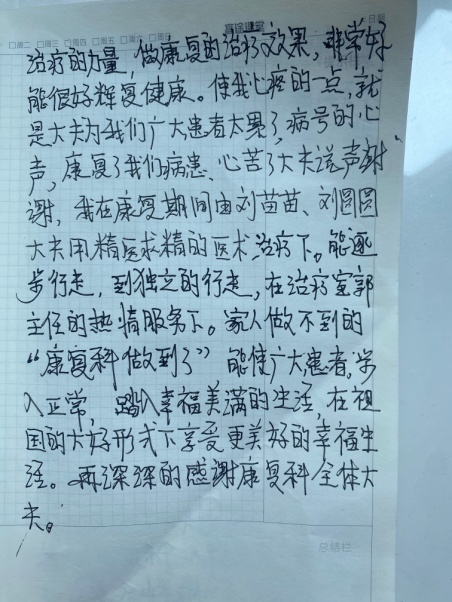 周二 周三 周四 周五 周六 周日
日期
治疗的力量，做康复的治疗效果，非常好
能很好辉复健康。使我心疼的一点，就
是大夫为我们广大患者太累了，病号的心
声，康复了我们病患、心苦了大夫送声谢
谢，我在康复期间由刘苗苗、刘圆圆
大夫用精医求精的医术治疗下。能逐
步行走，到独立的行走，在治疗室郭
主任的热情服务下。家人做不到的
“康复科做到了”能使广大患者，步
入正常，踏入幸福美满的生活，在祖
国的大好形式下享受更美好的幸福生
活。再深深的感谢康复科全体大
夫。
总结栏